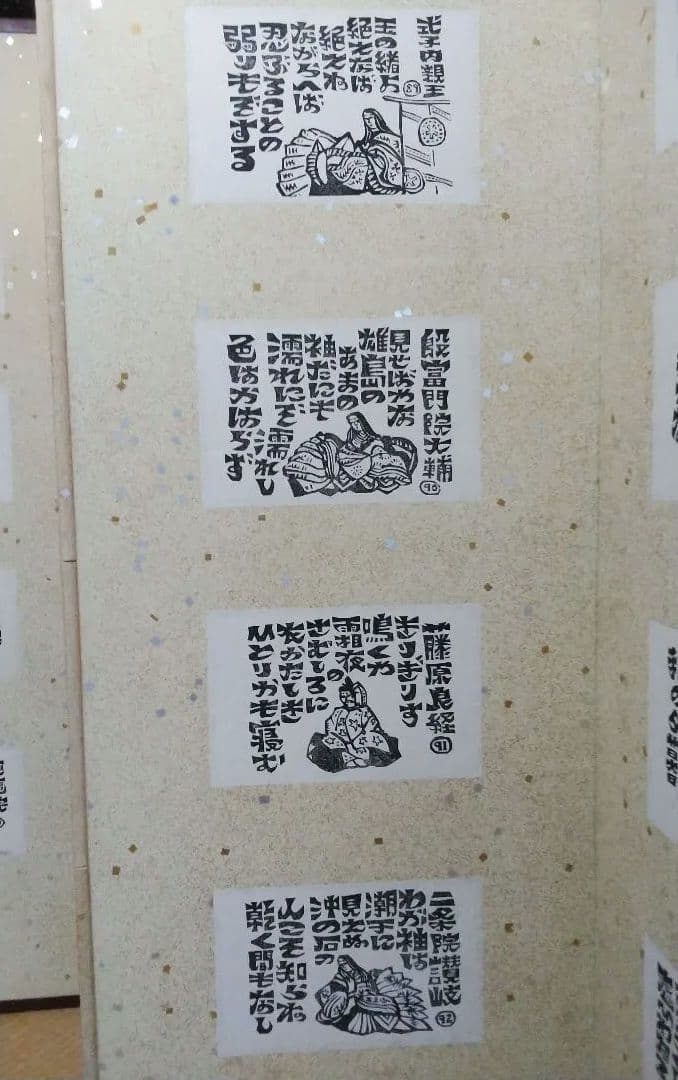 式子内親王
89
玉の緒よ
絶えなば
絶えね
ながらへば
忍ぶることの
弱りもぞする
殷富門院大輔
90
見せばやな
雄島の
あまの
袖だにも
濡れにぞ濡れし
色はかはらず
藤原良経
91
きりぎりす
鳴くや
霜夜の
さむしろに
衣かたしき
ひとりかも寝む
二条院讃岐
92
わが袖は
潮干に
見えぬ
沖の石の
人こそ知らね
乾く間もなし